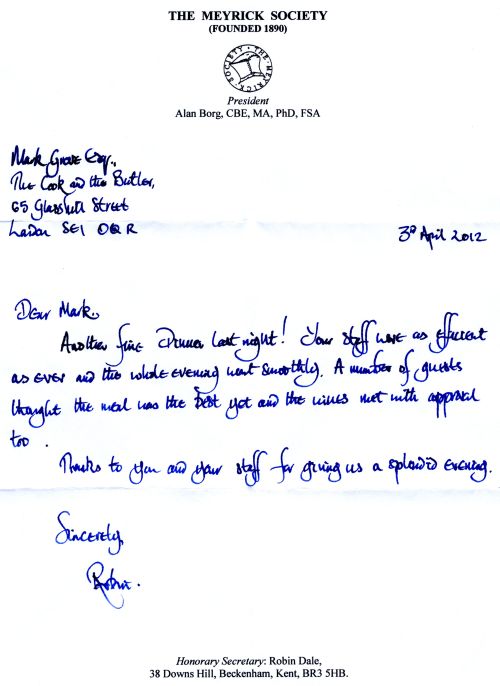 THE MEYRICK SOCIETY
(FOUNDED 1890)
THE MEYRICK SOCIETY
President
Alan Borg, CBE, MA, PhD, FSA
Mark Grove Esq.,
The Cook and the Butler,
65 Glasshill Street
London SE1 0QR
3rd April 2012
Dear Mark,
Another fine dinner last night! Your staff were as efficient
as ever and the whole evening went smoothly. A number of guests
thought the meal was the best yet and the wines met with approval
too.
Thanks to you and your staff for giving us a splendid evening.
Sincerely,
Robin.
Honorary Secretary: Robin Dale,
38 Downs Hill, Beckenham, Kent, BR3 5HB.